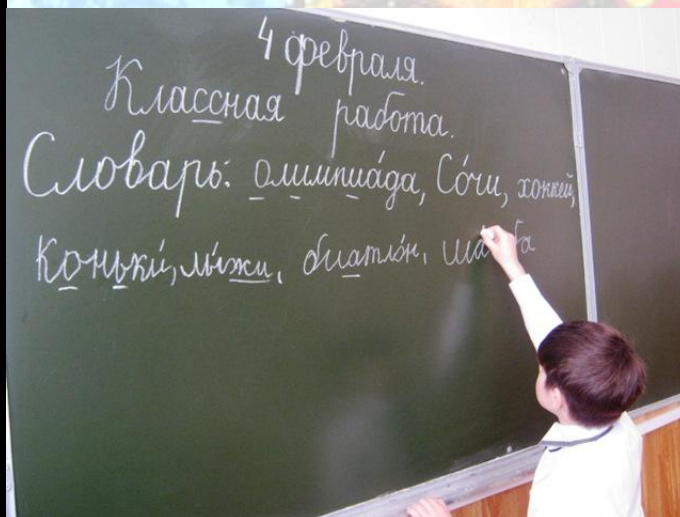 4 февраля.
Классная работа.
Словарь: олимпиа́да, Со́чи, хоккей,
коньки́, лы́жи, биатло́н,